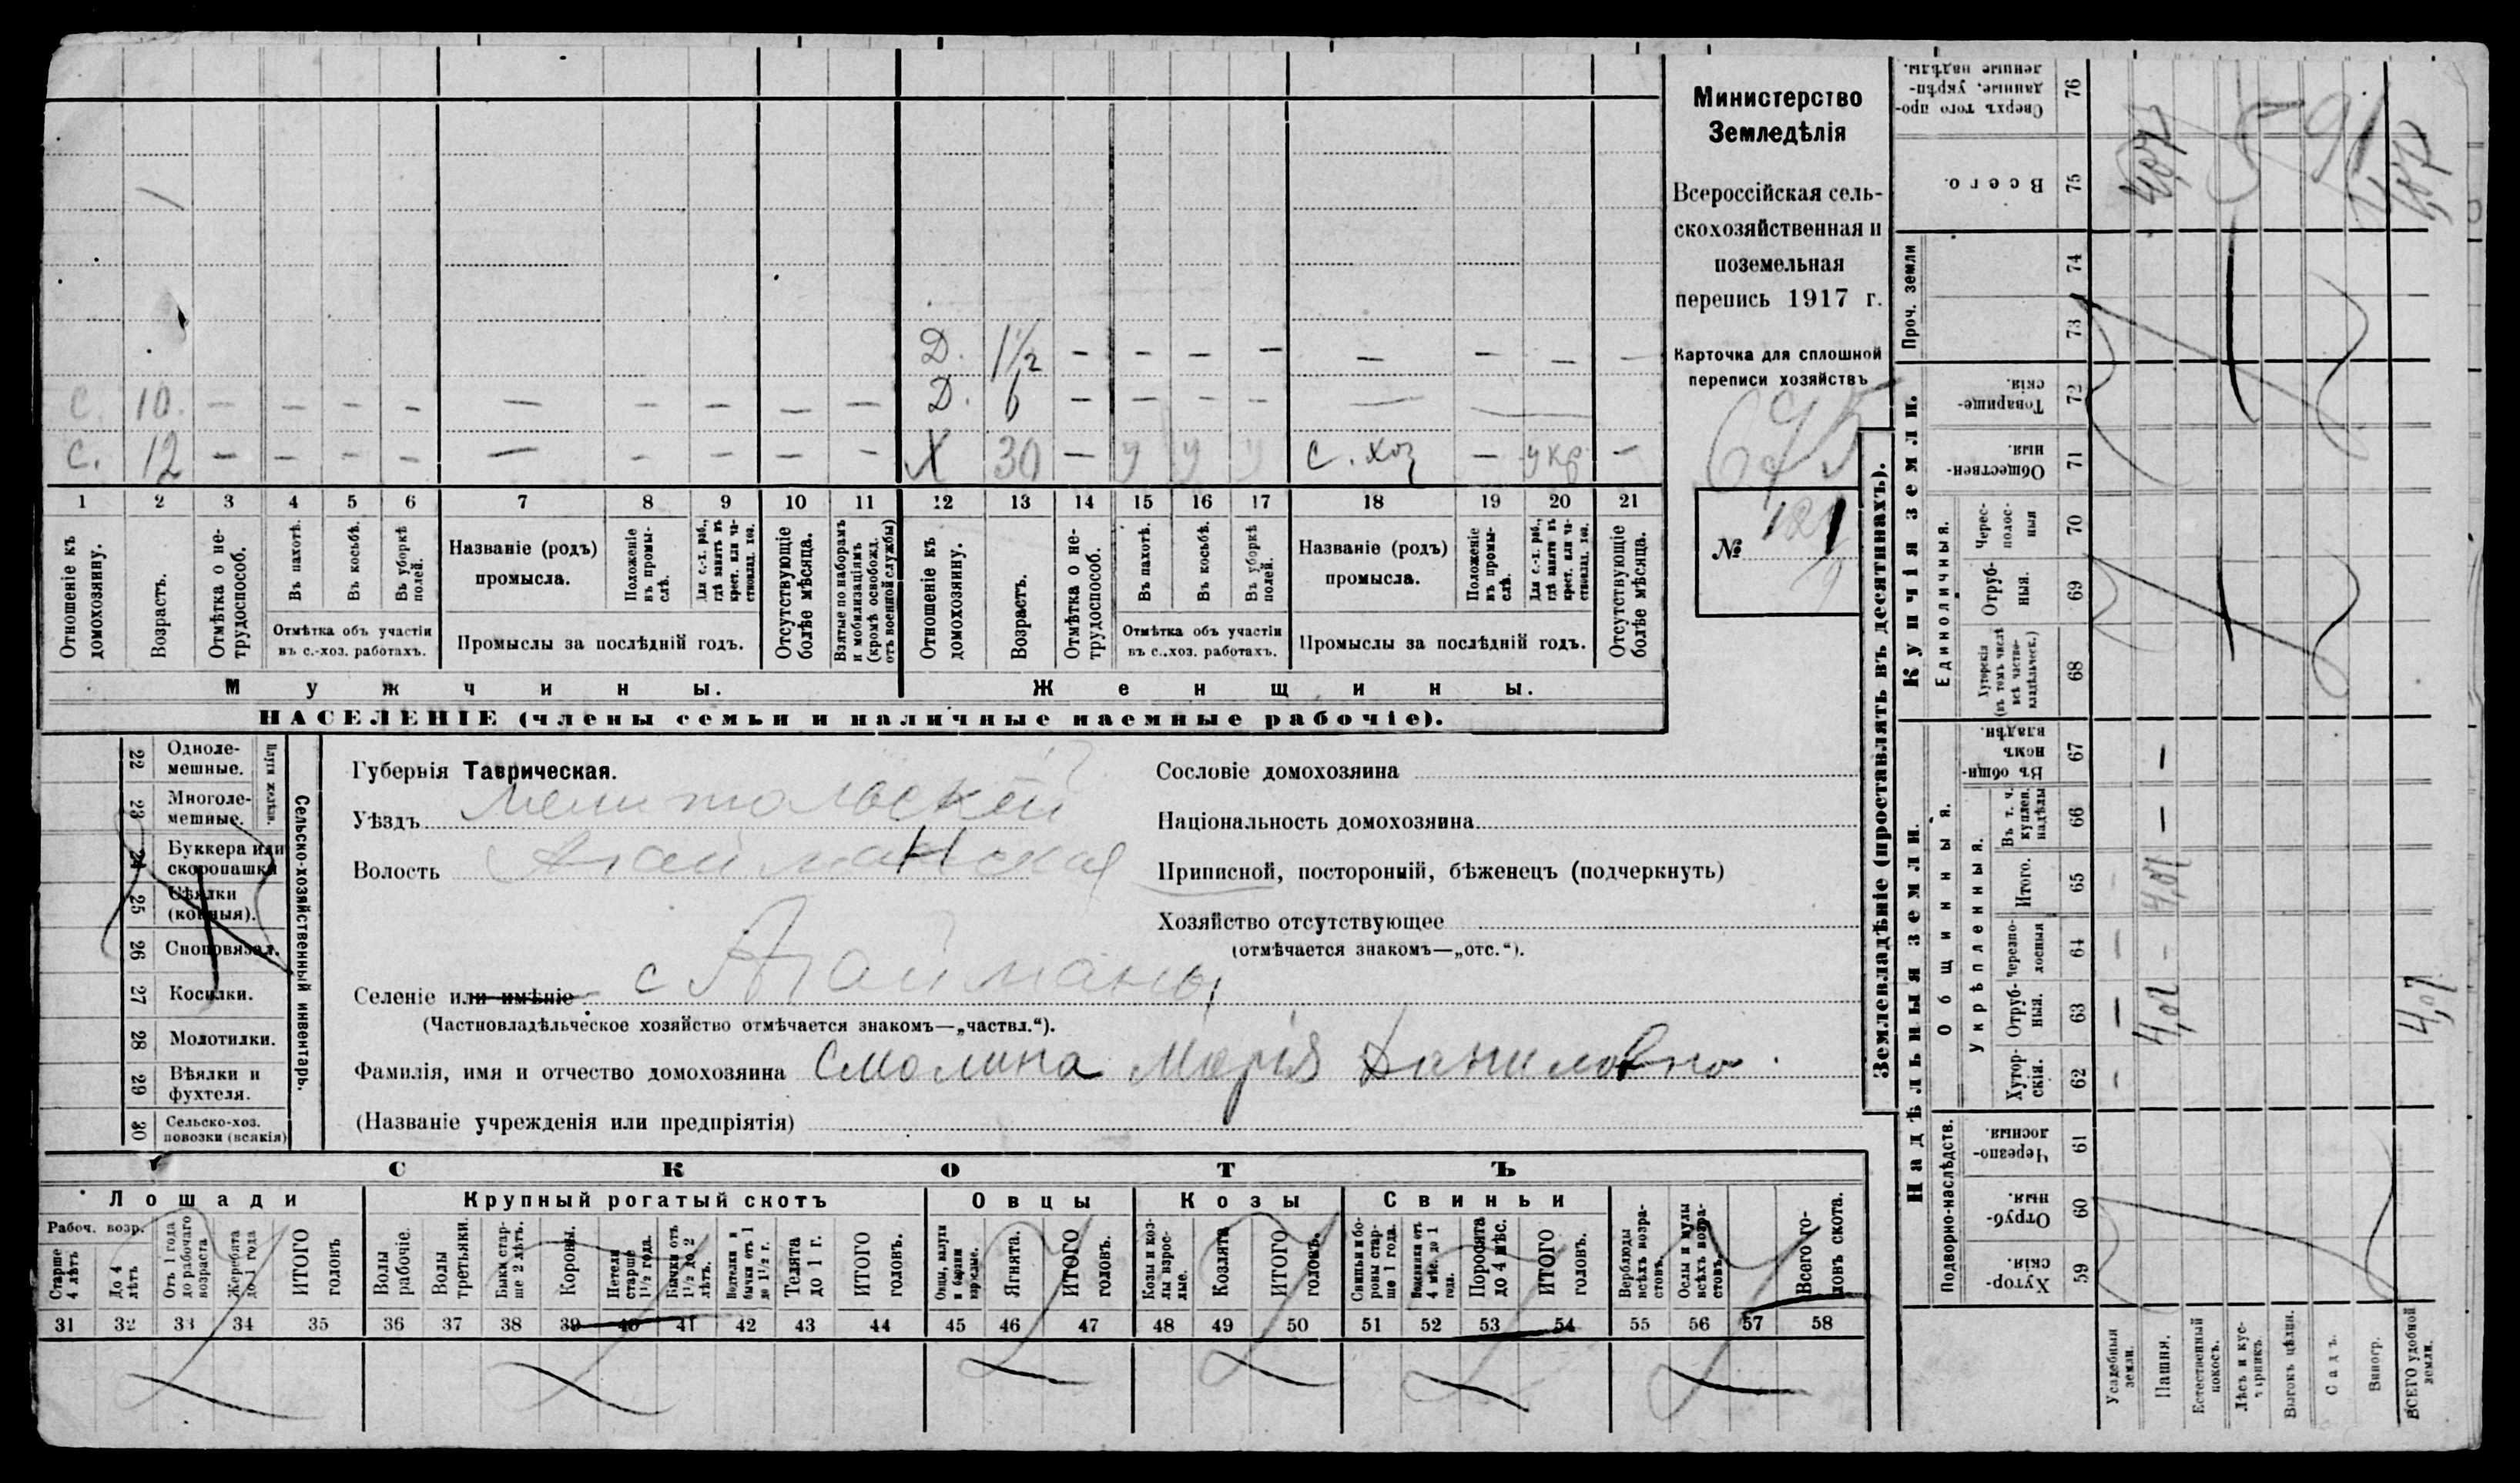 Министерство
Земледѣлія
Всероссійская сель-
скохозяйственная и
поземельная
перепись 1917 г.
Карточка для сплошной
переписи хозяйствъ
695
№ 121
Д. 1½ — — — — — — — —
С. 10. — — — — — — — — — Д. 6 — — — — — —
С. 12 — — — — — — — — — Х 30 — у у у с. хоз — укр —
1 2 3 4 5 6 7 8 9 10 11 12 13 14 15 16 17 18 19 20 21
Отношеніе къ домохозяину.
Возрастъ.
Отмѣтка о не-трудоспособ.
Въ пахотѣ.
Въ косьбѣ.
Въ уборкѣ полей.
Отмѣтка объ участіи въ с.-хоз. работахъ.
Названіе (родъ) промысла.
Положеніе въ промы-слѣ.
Для с.-х. раб., гдѣ занятъ въ крест. или ча-стновлад. хоз.
Промыслы за послѣдній годъ.
Отсутствующіе болѣе мѣсяца.
Взятые по наборамъ и мобилизаціямъ (кромѣ освобожд. отъ военной службы)
Отношеніе къ домохозяину.
Возрастъ.
Отмѣтка о не-трудоспособ.
Въ пахотѣ.
Въ косьбѣ.
Въ уборкѣ полей.
Отмѣтка объ участіи въ с.-хоз. работахъ.
Названіе (родъ) промысла.
Положеніе въ промы-слѣ.
Для с.-х. раб., гдѣ занята въ крест. или ча-стновлад. хоз.
Промыслы за послѣдній годъ.
Отсутствующіе болѣе мѣсяца.
Мужчины. Женщины.
НАСЕЛЕНІЕ (члены семьи и наличные наемные рабочіе).
Сельско-хозяйственный инвентарь.
Плуги желѣзн.
22 Одноле-мешные.
23 Многоле-мешные.
24 Буккера или скоропашки
25 Сѣялки (конныя).
26 Сноповязал.
27 Косилки.
28 Молотилки.
29 Вѣялки и фухтеля.
30 Сельско-хоз. повозки (всякія)
Губернія Таврическая.
Уѣздъ Мелитопольскій
Волость Агайманская
Селеніе или имѣніе с Агайманы
(Частновладѣльческое хозяйство отмѣчается знакомъ—„частвл.“).
Фамилія, имя и отчество домохозяина Смолина Марія Даниловна.
(Названіе учрежденія или предпріятія)
Сословіе домохозяина
Національность домохозяина
Приписной, посторонній, бѣженецъ (подчеркнуть)
Хозяйство отсутствующее
(отмѣчается знакомъ—„отс.“).
СКОТЪ
Лошади
Рабоч. возр.
Старше 4 лѣтъ
До 4 лѣтъ
Отъ 1 года до рабочаго возраста
Жеребята до 1 года
ИТОГО головъ
Крупный рогатый скотъ
Волы рабочіе.
Волы третьяки.
Быки стар-ше 2 лѣтъ.
Коровы.
Нетели старше 1½ года.
Бычки отъ 1½ до 2 лѣтъ.
Телята до 1 г.
ИТОГО головъ.
Овцы
Ягнята.
ИТОГО головъ.
Козы
Козы и коз-лы взрос-лые.
Козлята
ИТОГО головъ.
Свиньи
Свиньи и бо-ровы стар-ше 1 года.
Поросята до 4 мѣс.
ИТОГО головъ.
Верблюды всѣхъ возра-стовъ.
Ослы и мулы всѣхъ возра-стовъ.
Всего го-ловъ скота.
31 32 33 34 35 36 37 38 39 40 41 42 43 44 45 46 47 48 49 50 51 52 53 54 55 56 57 58
Землевладѣніе (проставлять въ десятинахъ).
Купчія земли.
Сверхъ того про-данные, укрѣп-ленные надѣлы. 76
Всего. 75 4,07 4,07
Проч. земли 74 73
Товарище-скія. 72
Обществен-ныя. 71
Единоличныя.
Черес-полос-ныя 70
Отруб-ныя. 69
Хуторскія (въ томъ числѣ всѣ частно-владѣльческ.) 68
Надѣльныя земли.
Общинныя.
Въ общин-номъ владѣн. 67 —
Укрѣпленныя.
Въ т. ч. куплен. надѣлы 66 —
Итого. 65 — 4,07
Черезпо-лосныя 64 — —
Отруб-ныя. 63 — 4,07 4,07
Хутор-скія. 62 —
Подворно-наслѣдств.
Черезпо-лосныя. 61
Отруб-ныя. 60
Хутор-скія. 59
Усадебныя земли.
Пашня.
Естественный покосъ.
Лѣсъ и кус-тарникъ.
Выгонъ цѣлин.
Садъ.
Виногр.
ВСЕГО удобной земли.